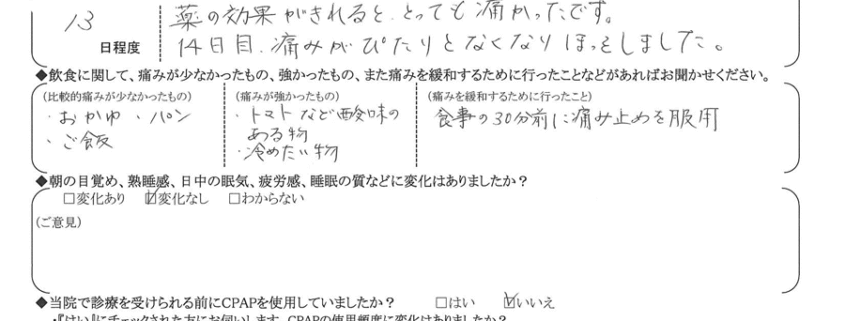 薬の効果がきれると、とっても痛かったです。
13
日程度
14日目、痛みがぴたりとなくなりほっとしました。
◆飲食に関して、痛みが少なかったもの、強かったもの、また痛みを緩和するために行ったことなどがあればお聞かせください。
(比較的痛みが少なかったもの) (痛みが強かったもの) (痛みを緩和するために行ったこと)
・おかゆ ・パン ・トマトなど酸味の 食事の30分前に痛み止めを服用
ある物
・ご飯
・冷めたい物
◆朝の目覚め、熟睡感、日中の眠気、疲労感、睡眠の質などに変化はありましたか?
□変化あり ☑変化なし □わからない
(ご意見)
◆当院で診療を受けられる前にCPAPを使用していましたか? □はい ☑いいえ
・『はい』にチェックされた方にお伺いします。CPAPの使用頻度に変化はありましたか?